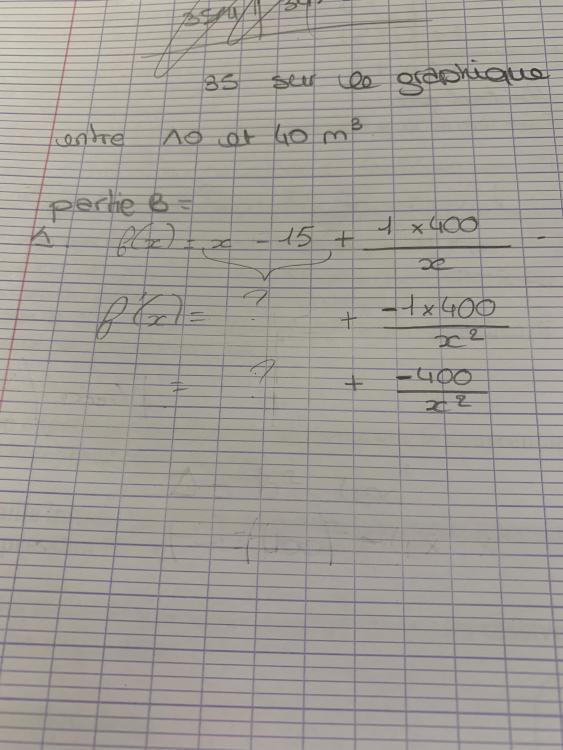 35 sur le graphique
entre 10 et 40 m³
partie B =
1. f(x) = x - 15 + 1 × 400 / x
f'(x) = ? + -1 × 400 / x²
= ? + -400 / x²